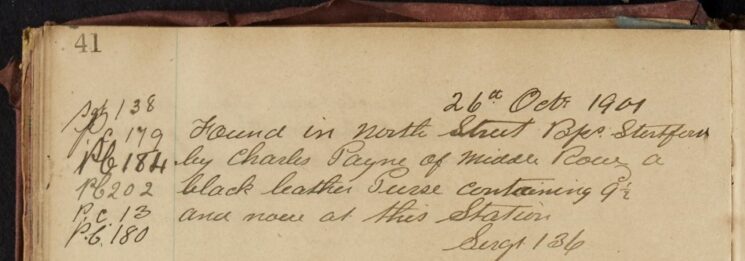 41
Sgt 138
P.C. 179
P.C. 184
P.C. 202
P.C. 13
P.C. 180
26th Octr 1901
Found in North Street Bps. Stortford
by Charles Payne of Middle Row, a
black leather Purse containing
and now at this Station
Sergt 136